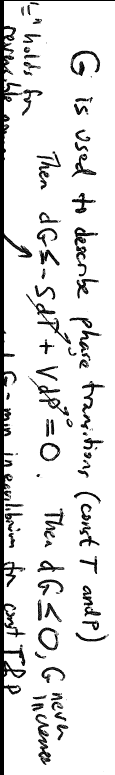 G is used to describe phase transitions (const T and p)
Then dG ≤ -SdT + Vdp = 0. Then dG ≤ 0, G never increases
"=" holds for
G-min in equilibrium for const T & p